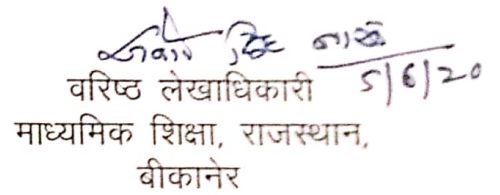 5/6/20
वरिष्ठ लेखाधिकारी
माध्यमिक शिक्षा, राजस्थान,
बीकानेर